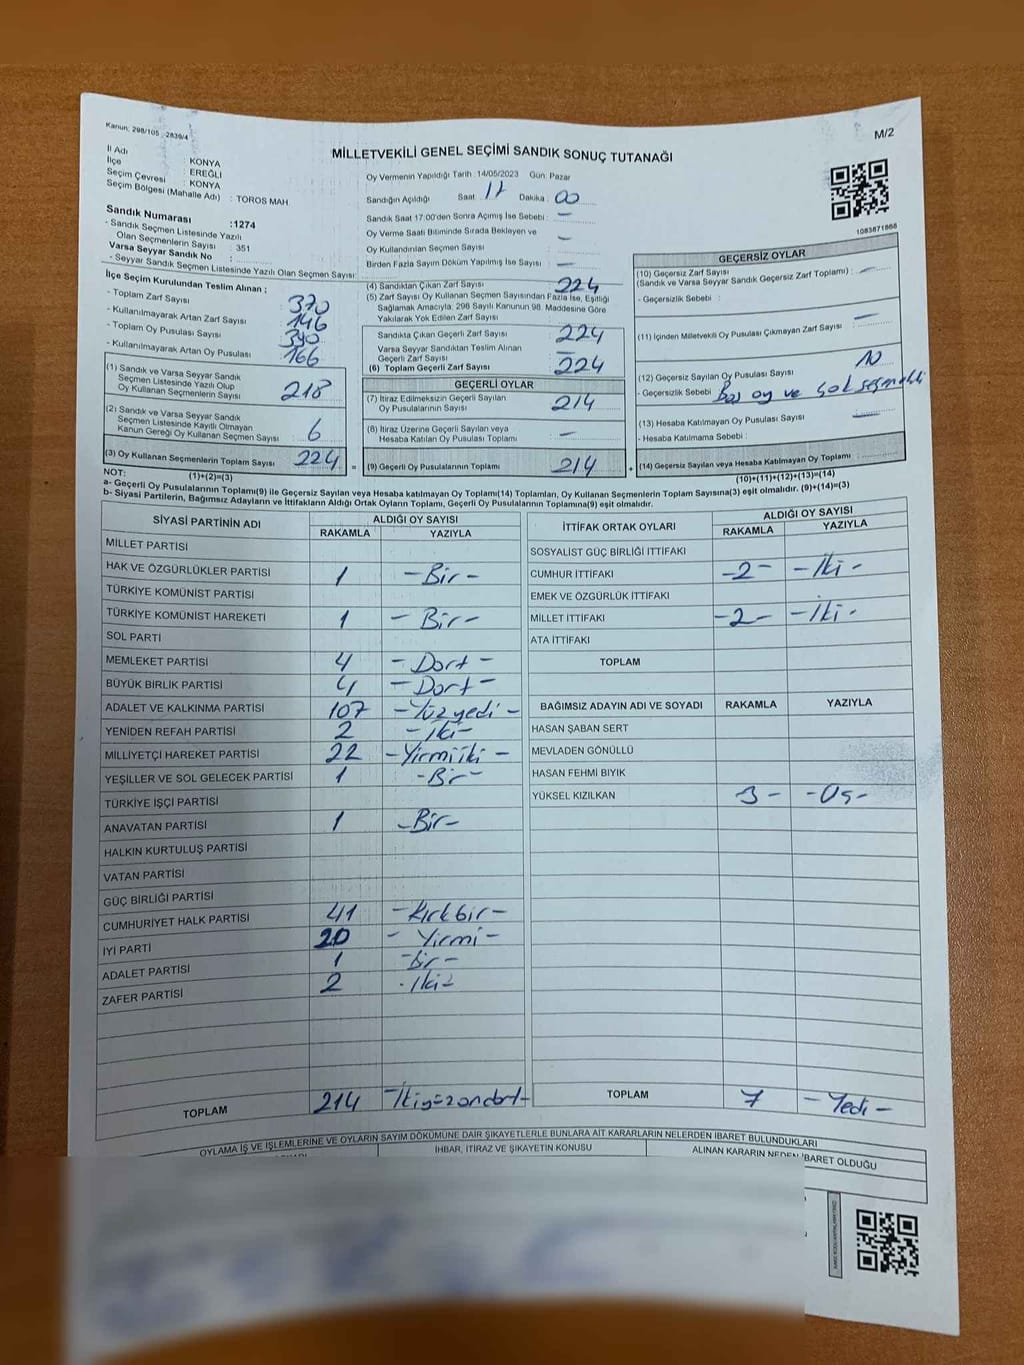 Kanun: 298/105, -2839/4
M/2
MİLLETVEKİLİ GENEL SEÇİMİ SANDIK SONUÇ TUTANAĞI
İl Adı : KONYA
İlçe : EREĞLİ
Seçim Çevresi : KONYA
Seçim Bölgesi (Mahalle Adı) : TOROS MAH.
Sandık Numarası : 1274
- Sandık Seçmen Listesinde Yazılı
Olan Seçmenlerin Sayısı : 351
Varsa Seyyar Sandık No :
- Seyyar Sandık Seçmen Listesinde Yazılı Olan Seçmen Sayısı :
Oy Vermenin Yapıldığı Tarih : 14/05/2023 Gün: Pazar
Sandığın Açıldığı Saat : 17 Dakika : 00
Sandık Saat 17:00'den Sonra Açılmış İse Sebebi : —
Oy Verme Saati Bitiminde Sırada Bekleyen ve
Oy Kullandırılan Seçmen Sayısı : —
Birden Fazla Sayım Döküm Yapılmış İse Sayısı : —
1083871868
İlçe Seçim Kurulundan Teslim Alınan ;
- Toplam Zarf Sayısı : 370
- Kullanılmayarak Artan Zarf Sayısı : 146
- Toplam Oy Pusulası Sayısı : 390
- Kullanılmayarak Artan Oy Pusulası : 166
(1) Sandık ve Varsa Seyyar Sandık
Seçmen Listesinde Yazılı Olup
Oy Kullanan Seçmenlerin Sayısı : 218
(2) Sandık ve Varsa Seyyar Sandık
Seçmen Listesinde Kayıtlı Olmayan
Kanun Gereği Oy Kullanan Seçmen Sayısı : 6
(3) Oy Kullanan Seçmenlerin Toplam Sayısı : 224
(1)+(2)=(3)
(4) Sandıktan Çıkan Zarf Sayısı : 224
(5) Zarf Sayısı Oy Kullanan Seçmen Sayısından Fazla İse, Eşitliği
Sağlamak Amacıyla: 298 Sayılı Kanunun 98. Maddesine Göre
Yakılarak Yok Edilen Zarf Sayısı :
Sandıkta Çıkan Geçerli Zarf Sayısı : 224
Varsa Seyyar Sandıktan Teslim Alınan
Geçerli Zarf Sayısı : —
(6) Toplam Geçerli Zarf Sayısı : 224
GEÇERLİ OYLAR
(7) İtiraz Edilmeksizin Geçerli Sayılan
Oy Pusulalarının Sayısı : 214
(8) İtiraz Üzerine Geçerli Sayılan veya
Hesaba Katılan Oy Pusulası Toplamı : —
= (9) Geçerli Oy Pusulalarının Toplamı : 214
GEÇERSİZ OYLAR
(10) Geçersiz Zarf Sayısı
(Sandık ve Varsa Seyyar Sandık Geçersiz Zarf Toplamı) : —
- Geçersizlik Sebebi :
(11) İçinden Milletvekili Oy Pusulası Çıkmayan Zarf Sayısı : —
(12) Geçersiz Sayılan Oy Pusulası Sayısı : 10
- Geçersizlik Sebebi : Boş oy ve
(13) Hesaba Katılmayan Oy Pusulası Sayısı : —
- Hesaba Katılmama Sebebi :
+ (14) Geçersiz Sayılan veya Hesaba Katılmayan Oy Toplamı :
(10)+(11)+(12)+(13)=(14)
NOT:
a- Geçerli Oy Pusulalarının Toplamı(9) ile Geçersiz Sayılan veya Hesaba katılmayan Oy Toplamı(14) Toplamları, Oy Kullanan Seçmenlerin Toplam Sayısına(3) eşit olmalıdır. (9)+(14)=(3)
b- Siyasi Partilerin, Bağımsız Adayların ve İttifakların Aldığı Ortak Oyların Toplamı, Geçerli Oy Pusulalarının Toplamına(9) eşit olmalıdır.
SİYASİ PARTİNİN ADI ALDIĞI OY SAYISI
RAKAMLA YAZIYLA
MİLLET PARTİSİ
HAK VE ÖZGÜRLÜKLER PARTİSİ 1 -Bir-
TÜRKİYE KOMÜNİST PARTİSİ
TÜRKİYE KOMÜNİST HAREKETİ 1 -Bir-
SOL PARTİ
MEMLEKET PARTİSİ 4 -Dört-
BÜYÜK BİRLİK PARTİSİ 4 -Dört-
ADALET VE KALKINMA PARTİSİ 107 -Yüzyedi-
YENİDEN REFAH PARTİSİ 2 -İki-
MİLLİYETÇİ HAREKET PARTİSİ 22 -Yirmiiki-
YEŞİLLER VE SOL GELECEK PARTİSİ 1 -Bir-
TÜRKİYE İŞÇİ PARTİSİ
ANAVATAN PARTİSİ 1 -Bir-
HALKIN KURTULUŞ PARTİSİ
VATAN PARTİSİ
GÜÇ BİRLİĞİ PARTİSİ
CUMHURİYET HALK PARTİSİ 41 -Kırkbir-
İYİ PARTİ 20 -Yirmi-
ADALET PARTİSİ 1 -Bir-
ZAFER PARTİSİ 2 -İki-
TOPLAM 214 -İkiyüzondört-
İTTİFAK ORTAK OYLARI ALDIĞI OY SAYISI
RAKAMLA YAZIYLA
SOSYALİST GÜÇ BİRLİĞİ İTTİFAKI
CUMHUR İTTİFAKI -2- -İki-
EMEK VE ÖZGÜRLÜK İTTİFAKI
MİLLET İTTİFAKI -2- -İki-
ATA İTTİFAKI
TOPLAM
BAĞIMSIZ ADAYIN ADI VE SOYADI RAKAMLA YAZIYLA
HASAN ŞABAN SERT
MEVLADEN GÖNÜLLÜ
HASAN FEHMİ BIYIK
YÜKSEL KIZILKAN 3- -Üç-
TOPLAM 7 -Yedi-
OYLAMA İŞ VE İŞLEMLERİNE VE OYLARIN SAYIM DÖKÜMÜNE DAİR ŞİKAYETLERLE BUNLARA AİT KARARLARIN NELERDEN İBARET BULUNDUKLARI
İHBAR, İTİRAZ VE ŞİKAYETİN KONUSU
ALINAN KARARIN NEDEN İBARET OLDUĞU